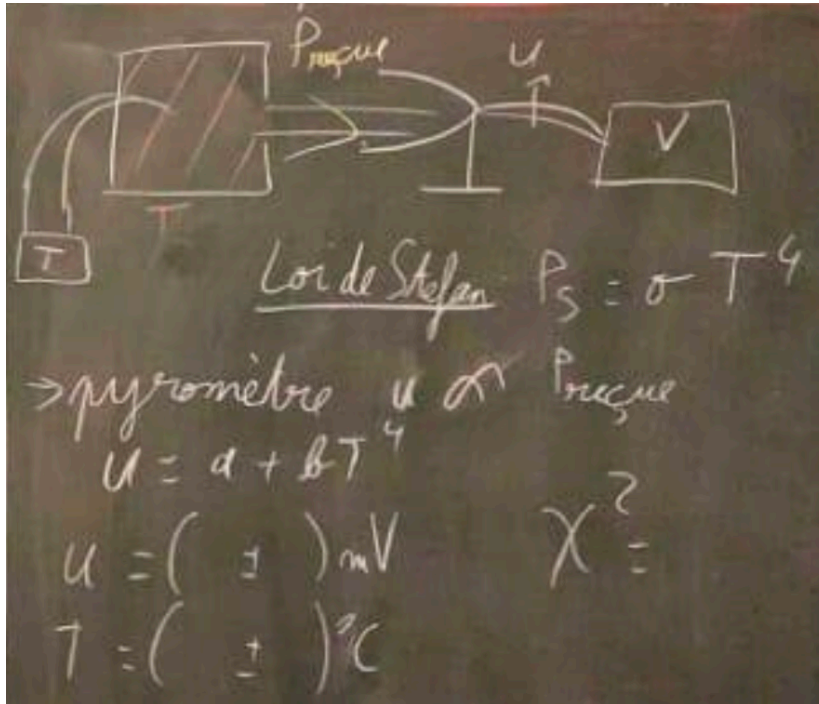 Preçue
u
V
T
T
Loi de Stefan Ps = σ T⁴
→ pyromètre u ∝ Preçue
u = a + b T⁴
u = ( ± ) mV
χ² =
T = ( ± ) °C